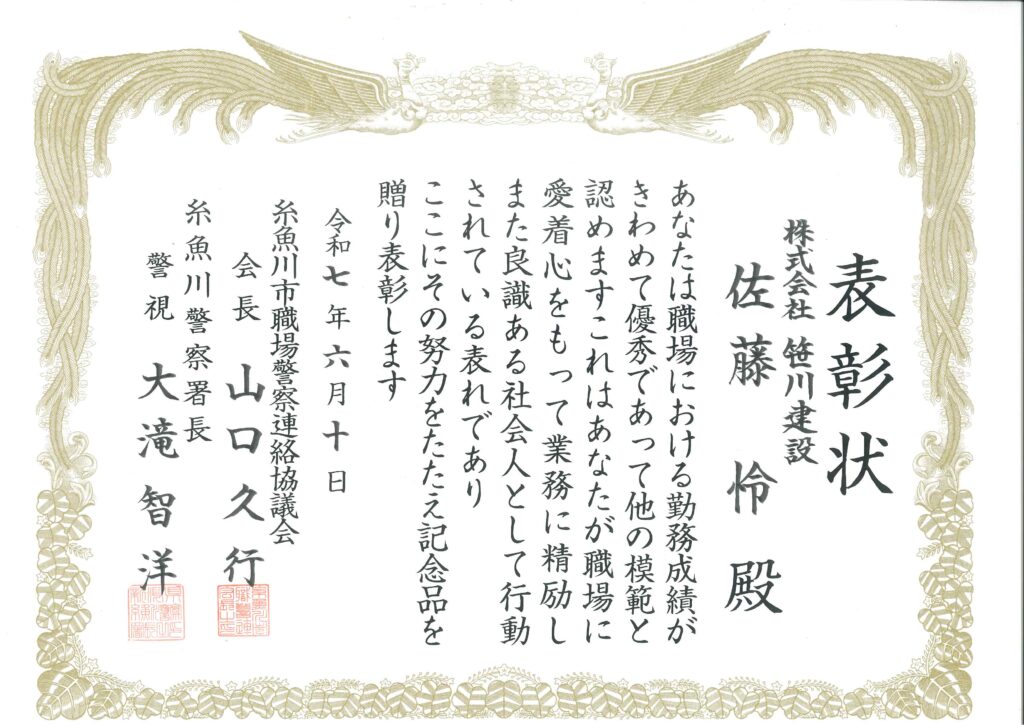 表彰状
株式会社 笹川建設
佐藤 怜 殿
あなたは職場における勤務成績が
きわめて優秀であって他の模範と
認めますこれはあなたが職場に
愛着心をもって業務に精励し
また良識ある社会人として行動
されている表れであり
ここにその努力をたたえ記念品を
贈り表彰します
令和七年六月十日
糸魚川市職場警察連絡協議会
会長 山口久行
糸魚川警察署長
警視 大滝智洋